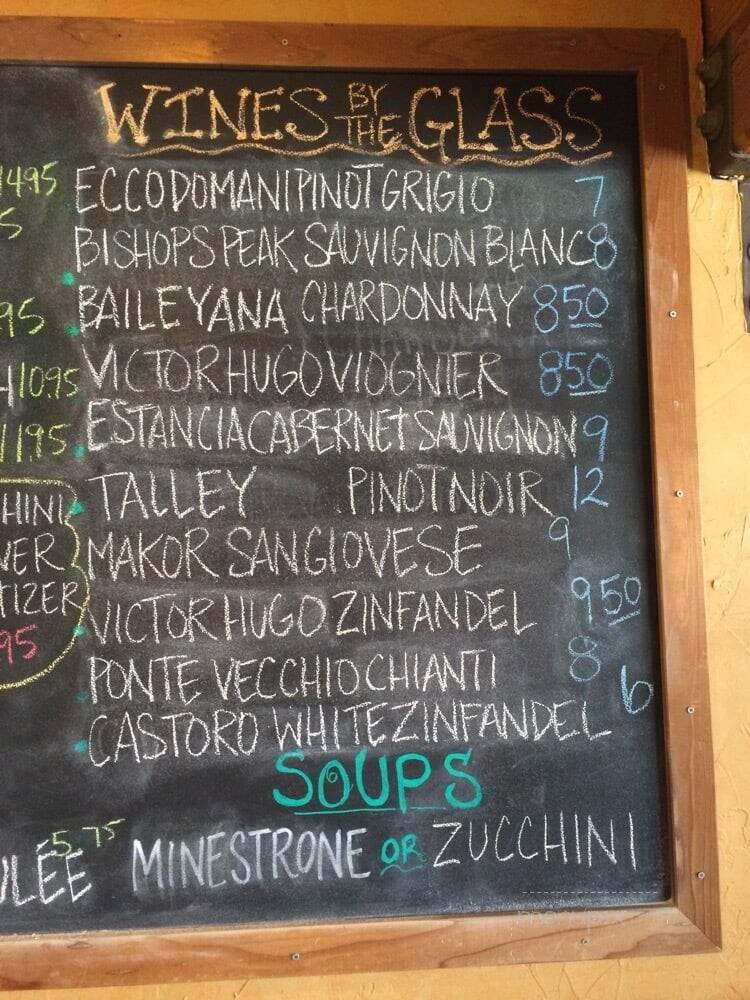 WINES BY THE GLASS
ECCO DOMANI PINOT GRIGIO 7
BISHOPS PEAK SAUVIGNON BLANC 8
BAILEYANA CHARDONNAY 850
VICTOR HUGO VIOGNIER 850
ESTANCIA CABERNET SAUVIGNON 9
TALLEY PINOT NOIR 12
MAKOR SANGIOVESE 9
VICTOR HUGO ZINFANDEL 950
PONTE VECCHIO CHIANTI 8
CASTORO WHITE ZINFANDEL 6
SOUPS
MINESTRONE OR ZUCCHINI
1495
5
95
1095
1195
HINI
WER
TIZER
95
5.75
ULÉE